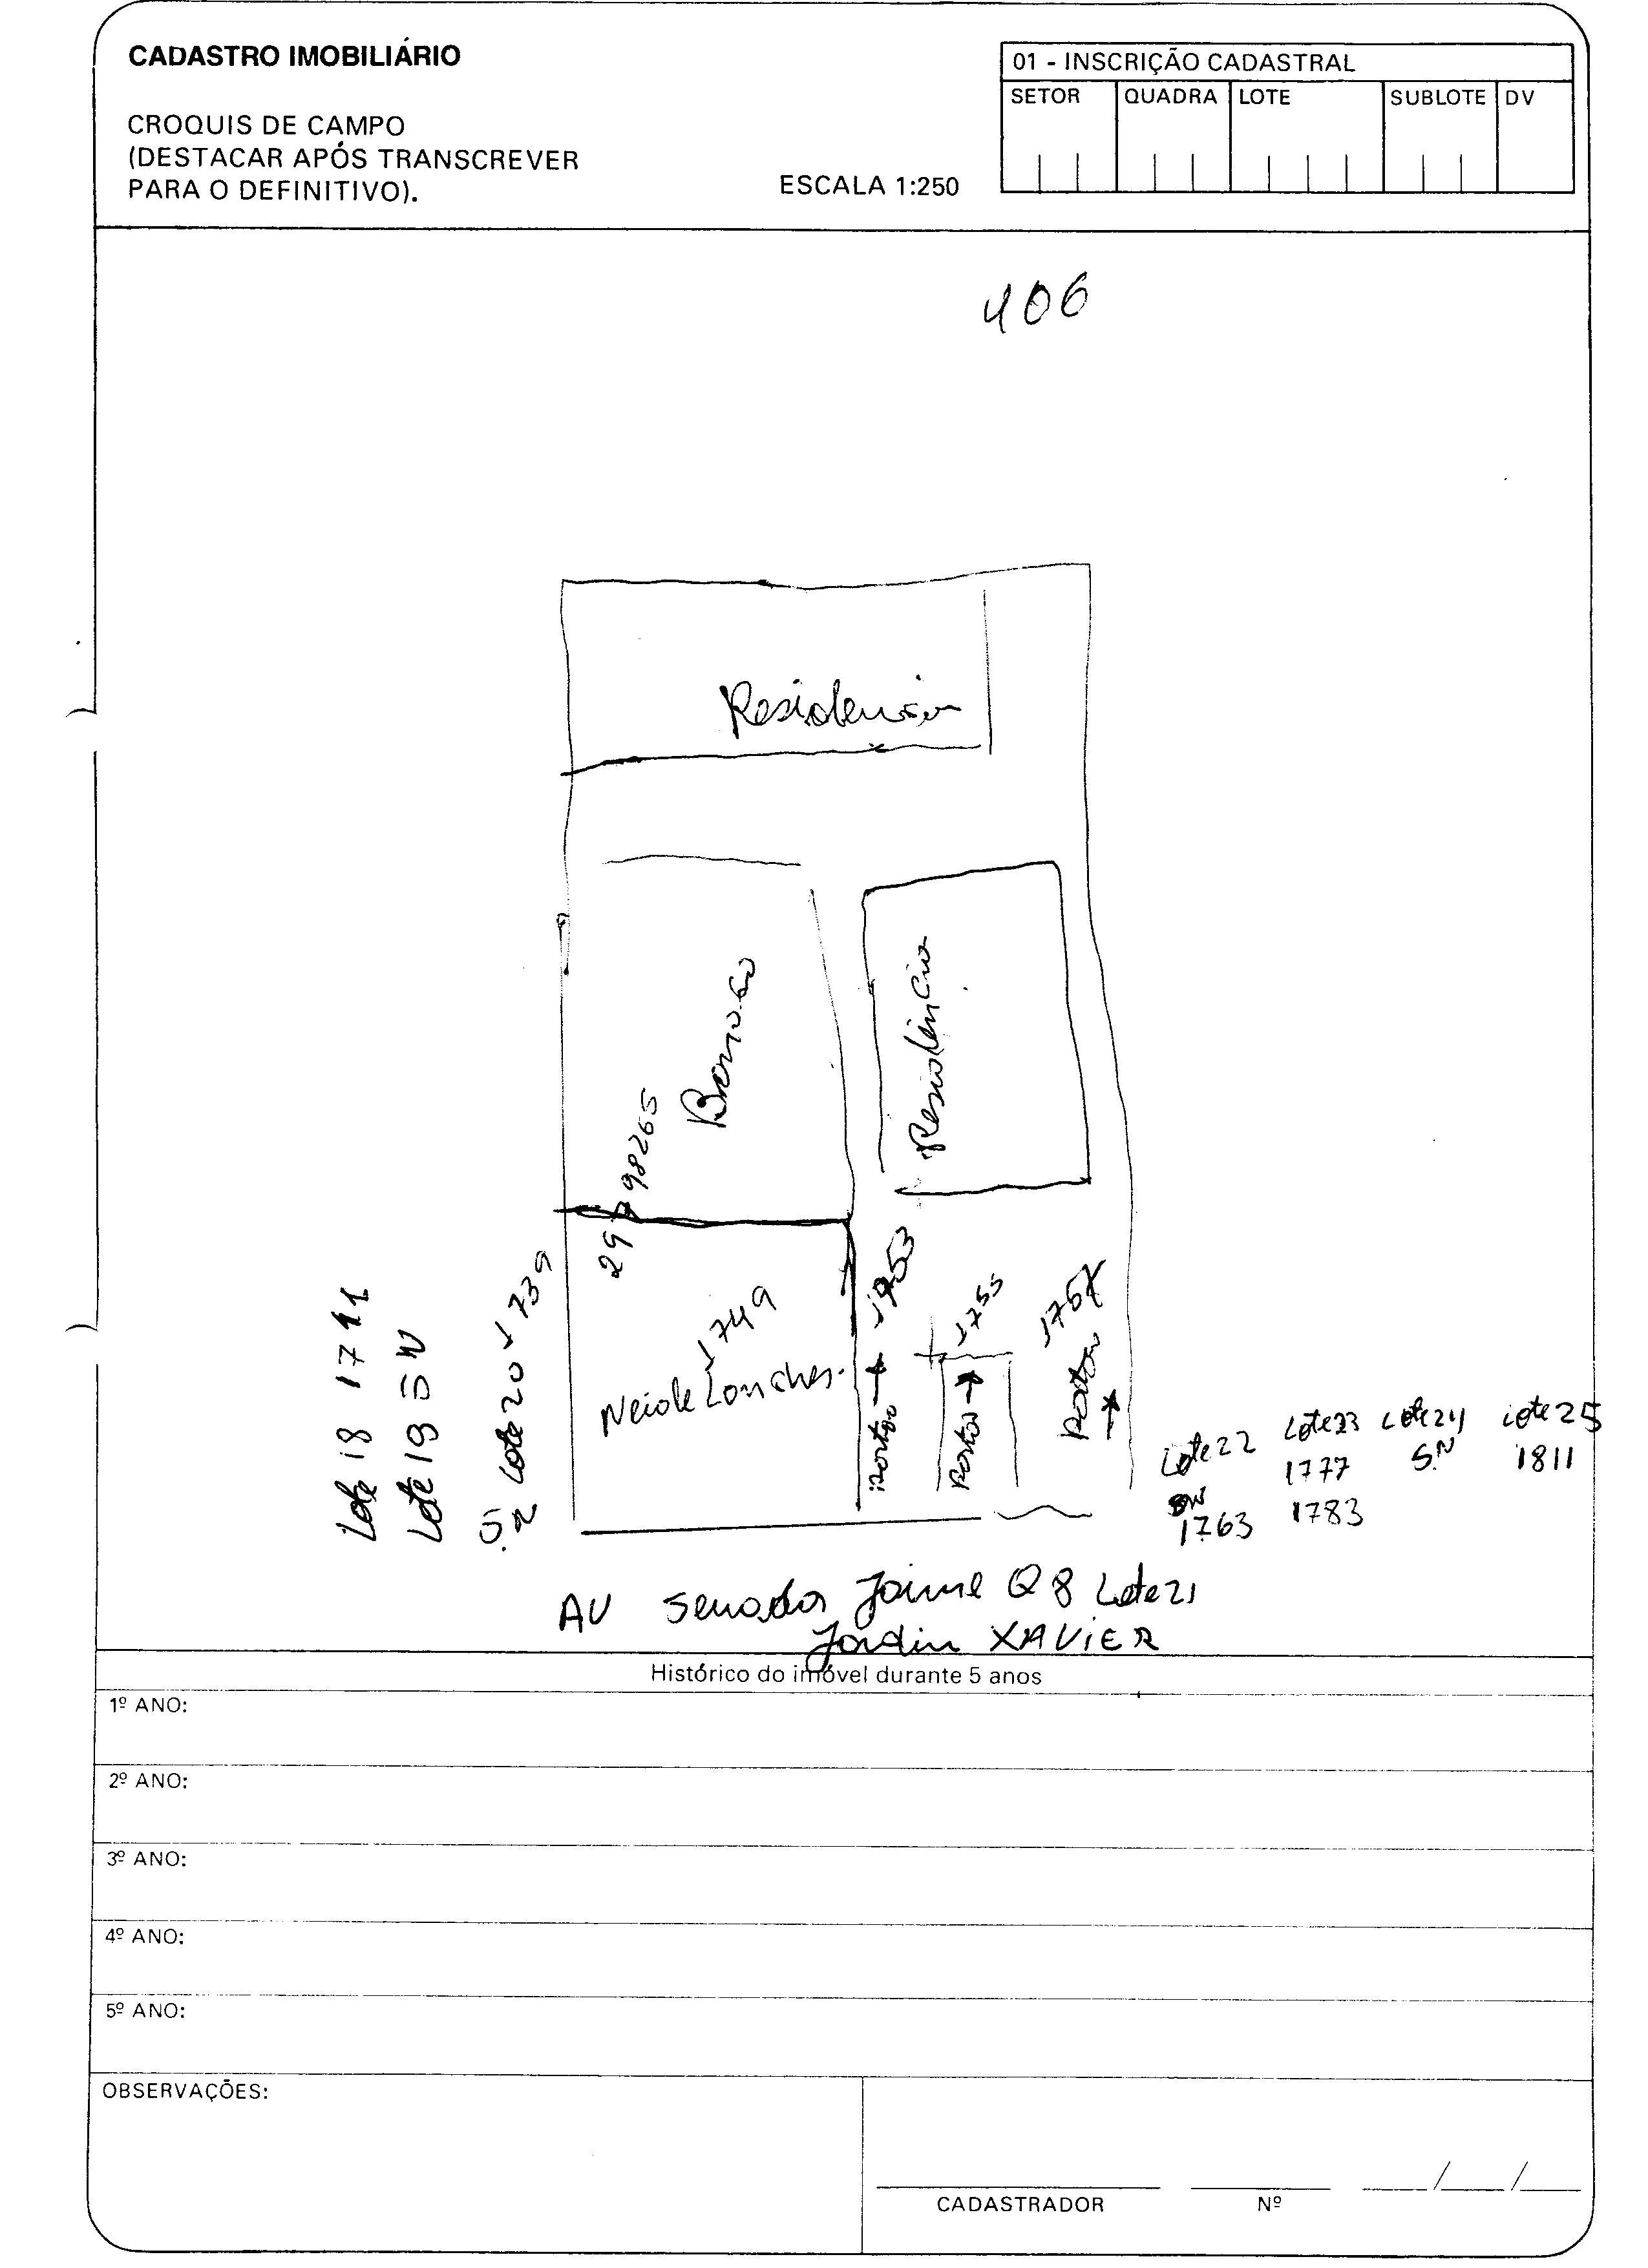 CADASTRO IMOBILIÁRIO
CROQUIS DE CAMPO
(DESTACAR APÓS TRANSCREVER
PARA O DEFINITIVO).
ESCALA 1:250
01 - INSCRIÇÃO CADASTRAL
SETOR QUADRA LOTE SUBLOTE DV
406
Residencia
Barracão
Residência
98265
1749
Neide Lanches.
1753
Portão
1755
Portão
1757
Portão
Lote 18 1741
Lote 19 SN
Lote 20 1739
Lote 22 Lote 23 Lote 24 Lote 25
1777 SN 1811
1763 1783
AV Senador Jaime Q 8 Lote 21
Jardin XAVIER
Histórico do imóvel durante 5 anos
1º ANO:
2º ANO:
3º ANO:
4º ANO:
5º ANO:
OBSERVAÇÕES:
CADASTRADOR Nº / /